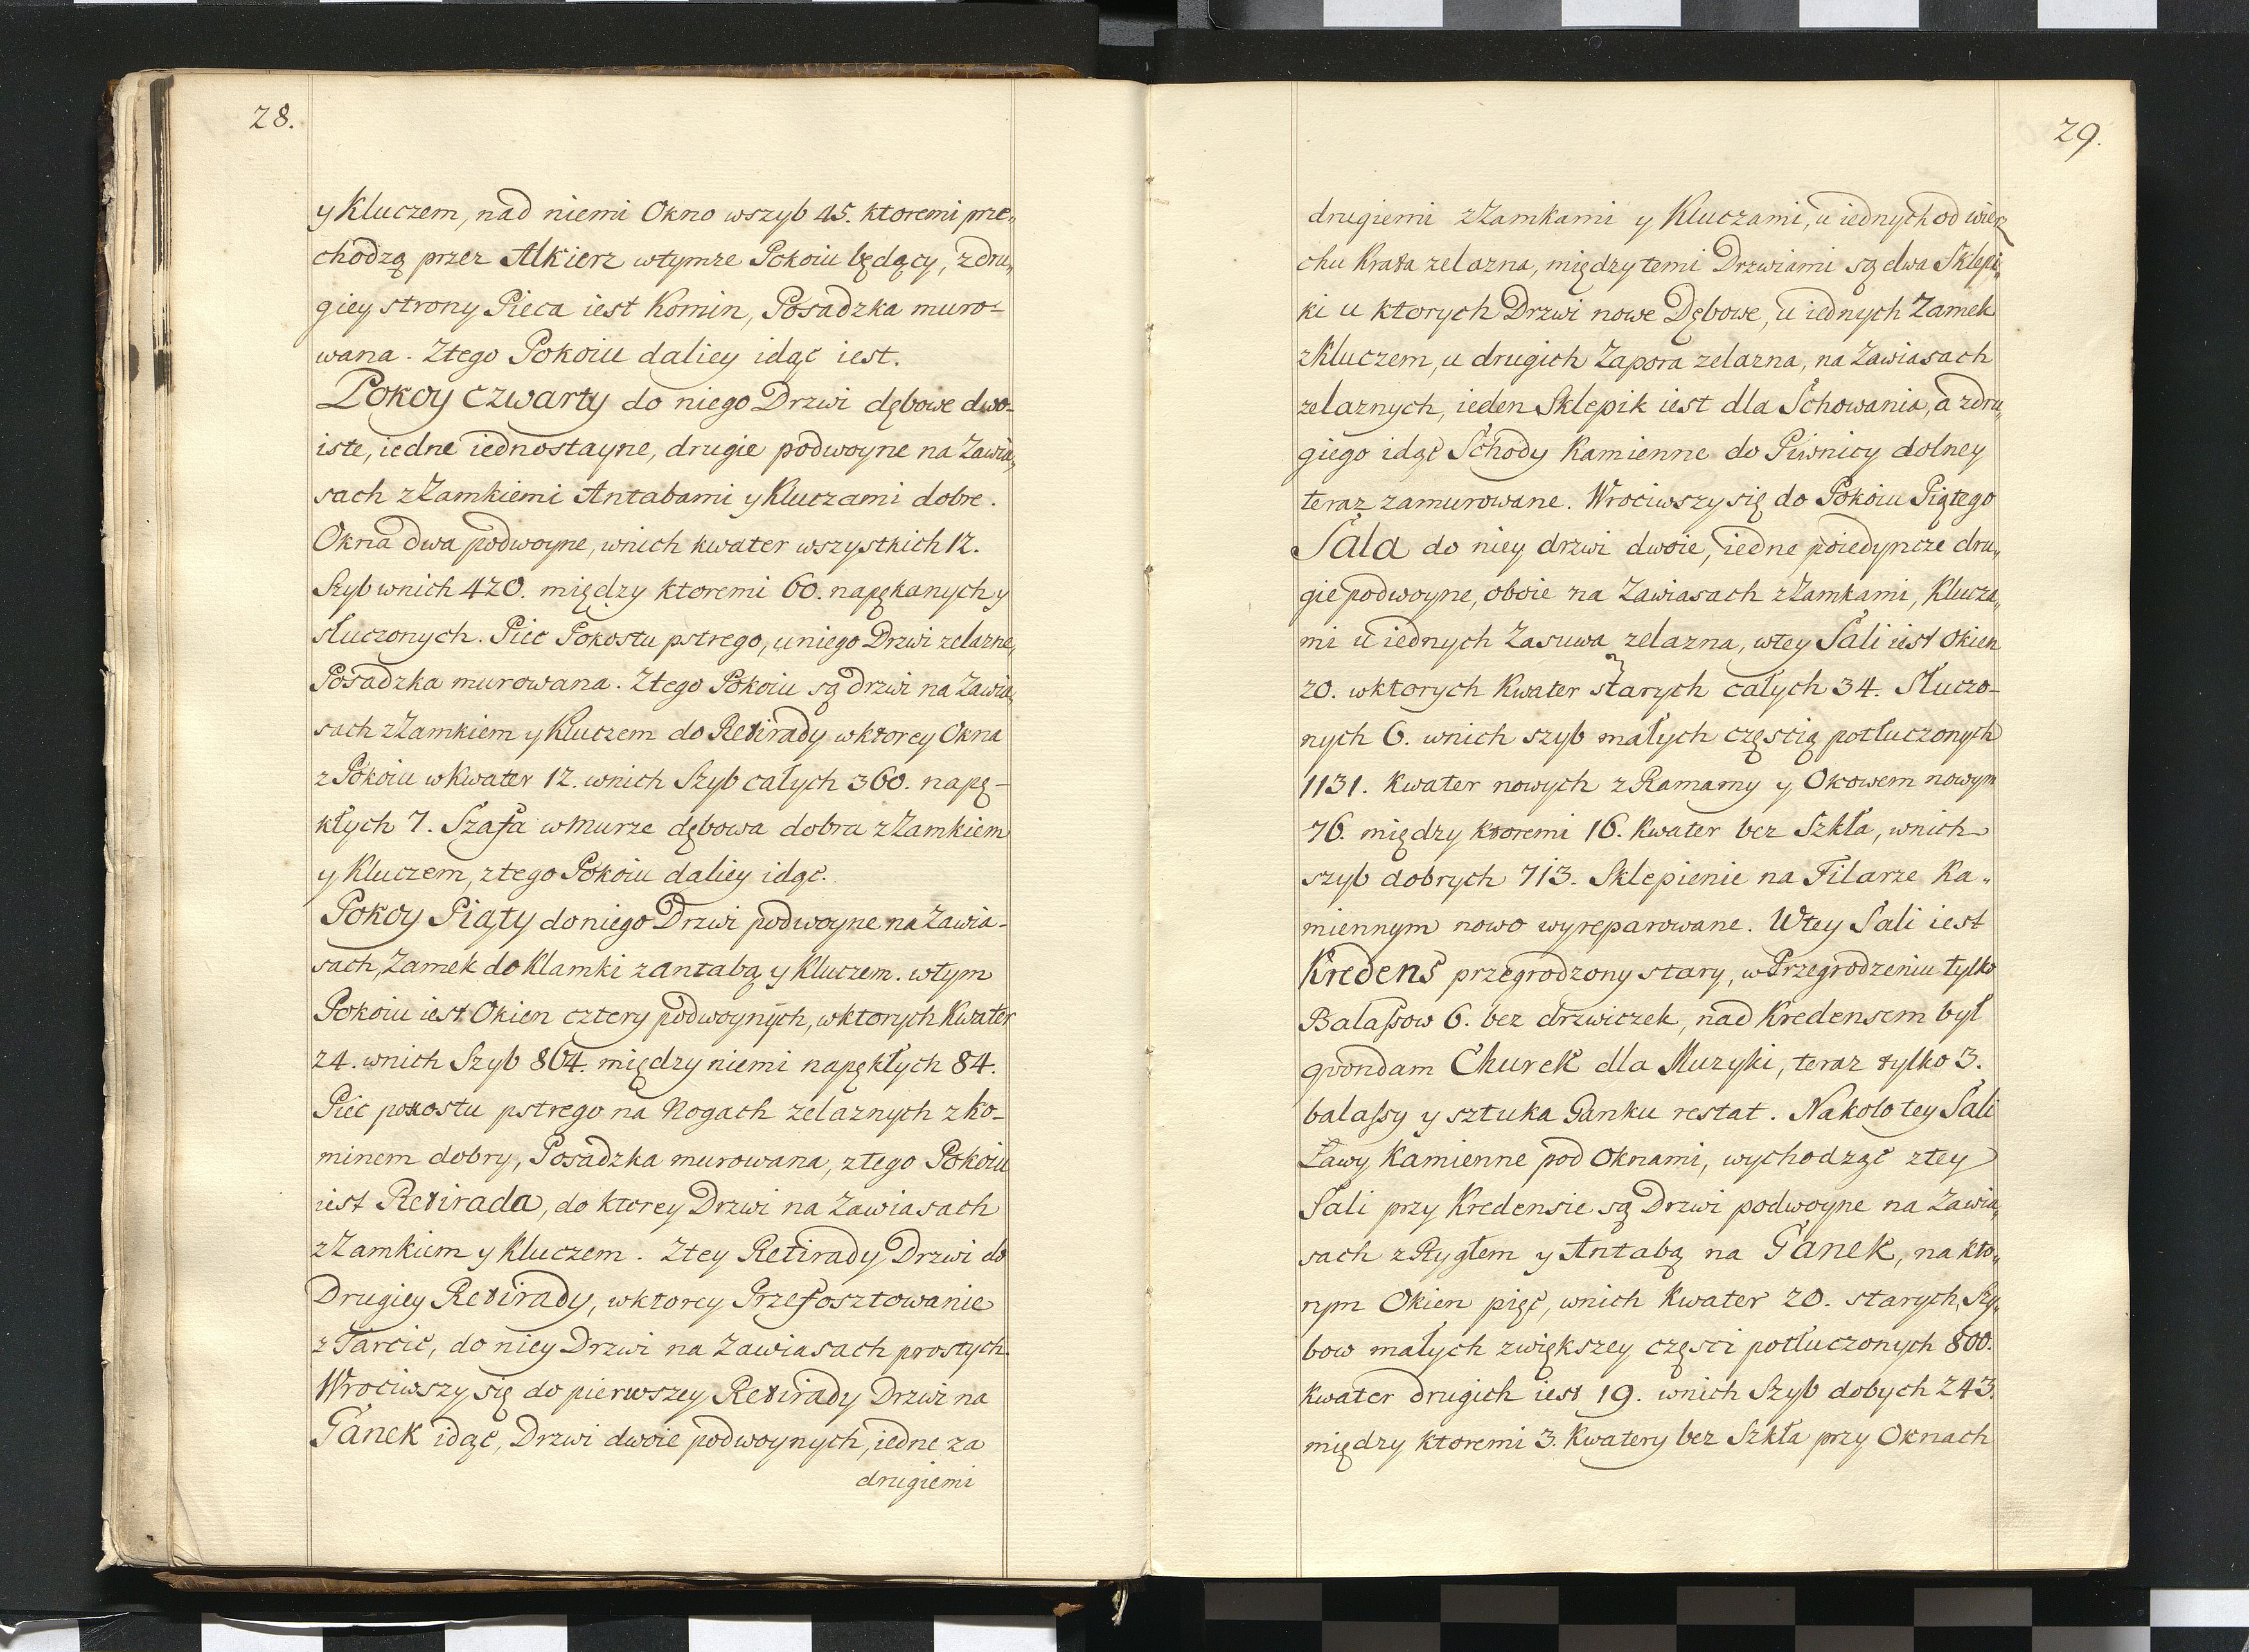 28.
y Kluczem, nad niemi Okno wszyb 45. ktoremi prze„
chodzą przez Alkierz wtymze Pokoiu będący, zdru„
giey strony Pieca iest Komin, Posadzka muro-
wana. Ztego Pokoiu daliey idąc iest.
Pokoy czwarty do niego Drzwi dębowe dwo-
iste, iedne iednostayne, drugie podwoyne na Zawia„
sach zZamkiemi Antabami y Kluczami dobre.
Okna dwa podwoyne, wnich kwater wszystkich 12.
Szyb wnich 420. między ktoremi 60. napękanych y
słuczonych. Piec Pokostu pstrego, uniego Drzwi zelazne,
Posadzka murowana. Ztego Pokoiu są drzwi na Zawia„
sach zZamkiem y Kluczem do Retirady wktorey Okna
z Pokoiu wKwater 12. wnich Szyb całych 360. napę-
kłych 7. Szafa wMurze dębowa dobra zZamkiem
y Kluczem, ztego Pokoiu daliey idąc.
Pokoy Piąty doniego Drzwi podwoyne na Zawia-
sach, Zamek do Klamki zantabą y Kluczem. wtym
Pokoiu iest Okien cztery podwoynych, wktorych Kwater
24. wnich Szyb 864. między niemi napękłych 84.
Piec pokostu pstrego na Nogach zelaznych zko-
minem dobry, Posadzka murowana, ztego Pokoiu
iest Retirada, do ktorey Drzwi na Zawiasach
zZamkiem y Kluczem. Ztey Retirady Drzwi do
Drugiey Retirady, wktorey Przefosztowanie
z Tarcic, do niey Drzwi na Zawiasach prostych.
Wrociwszy się do pierwszey Retirady Drzwi na
Ganek idąc, Drzwi dwoie podwoynych, iedne za
drugiemi
29.
drugiemi zZamkami y Kluczami, u iednych od wierz
chu Krata zelazna, między temi Drzwiami są dwa Sklepi„
ki u ktorych Drzwi nowe Dębowe, u iednych Zamek
zKluczem, u drugich Zapora zelazna, na Zawiasach
zelaznych, ieden Sklepik iest dla Schowania, a zdru„
giego idąc Schody Kamienne do Piwnicy dolney
teraz zamurowane. Wrociwszy się do Pokoiu Piątego
Sala do niey drzwi dwoie, iedne poiedyncze dru„
gie podwoyne, oboie na Zawiasach zZamkami, Klucza„
mi u iednych Zasuwa zelazna, wtey Sali iest Okien
20. wktorych Kwater starych całych 34. Słuczo-
nych 6. wnich szyb małych częscią potłuczonych
1131. Kwater nowych zRamamy y Okowem nowym
76. między ktoremi 16. Kwater bez Szkła, wnich
szyb dobrych 713. Sklepienie na Filarze Ka„
miennym nowo wyreparowane. Wtey Sali iest
Kredens przegrodzony stary, wPrzegrodzeniu tylko
Balassow 6. bez drzwiczek, nad Kredensem był
qvondam Churek dla Muzyki, teraz tylko 3.
balassy y sztuka Ganku restat. Nakoło tey Sali
Ławy Kamienne pod Oknami, wychodząc ztey
Sali przy Kredensie są Drzwi podwoyne na Zawia„
sach zRygłem y Antabą na Ganek, na kto„
rym Okien pięć, wnich Kwater 20. starych, Szy„
bow małych zwiększey częsci potłuczonych 800.
Kwater drugich iest 19. wnich Szyb dobych 243.
między ktoremi 3. Kwatery bez Szkła przy Oknach